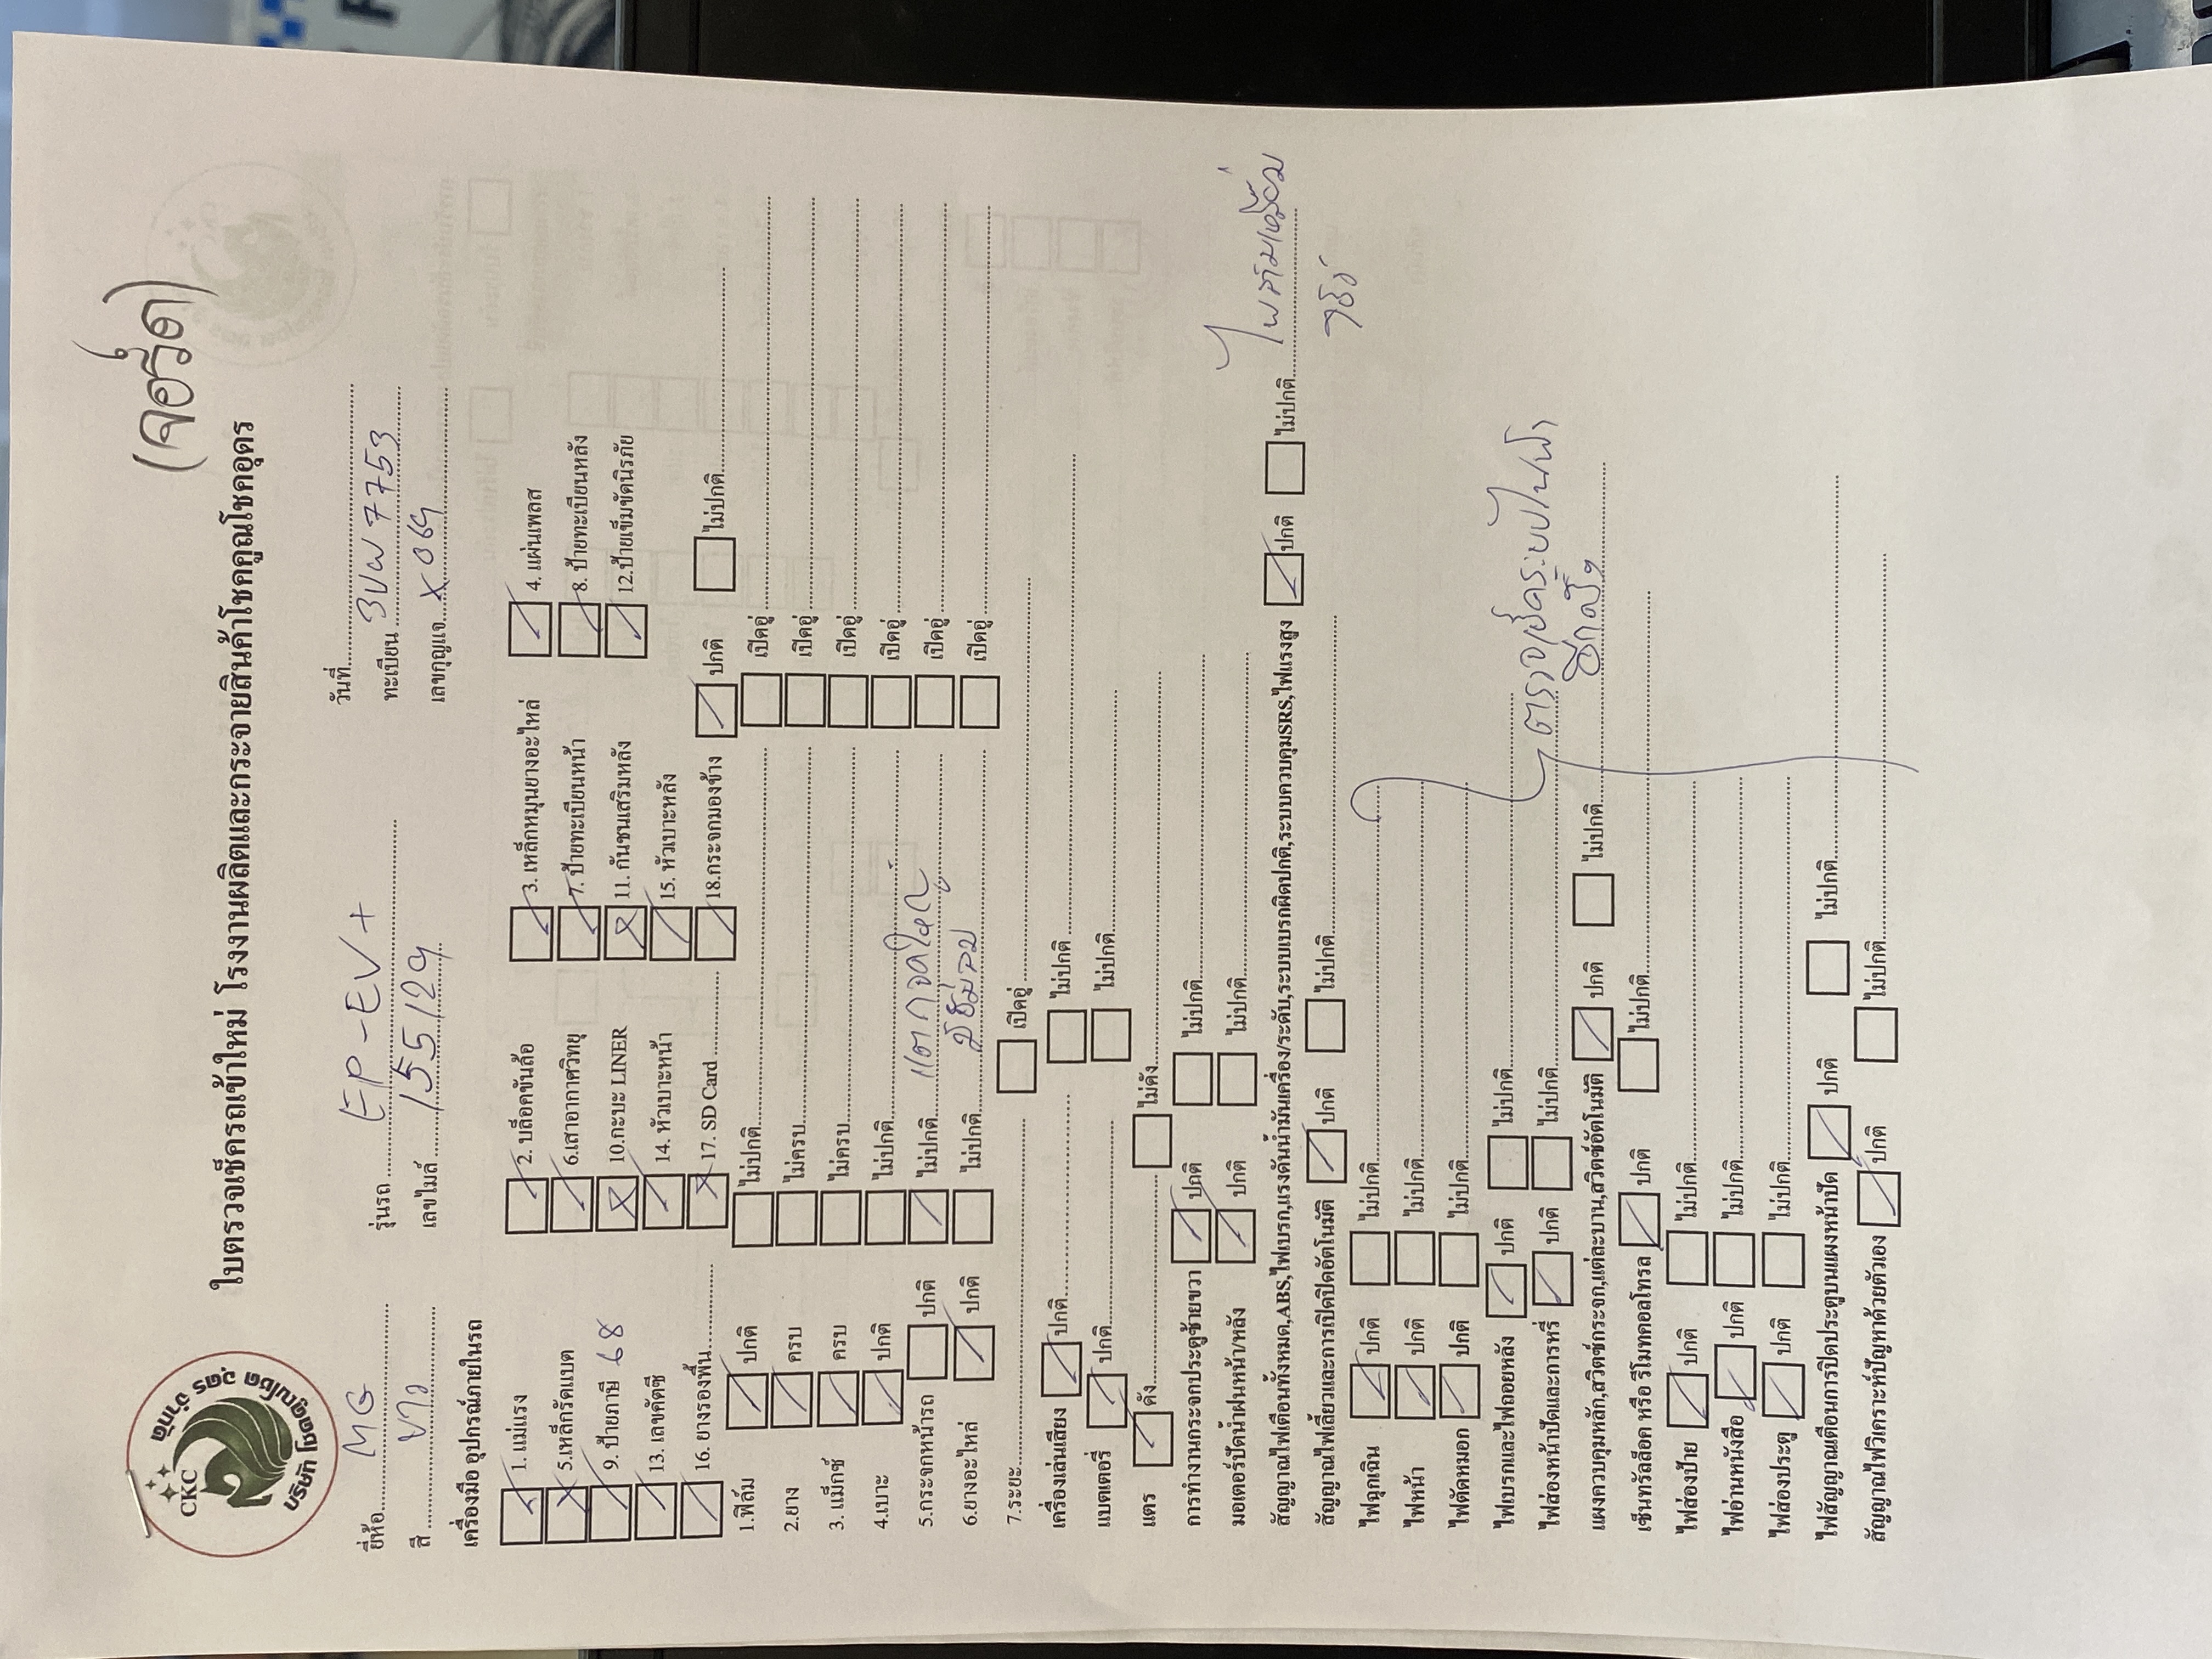 (จอร์ด)
CKC
บริษัท โชคคูณโชค อุดร จำกัด
ใบตรวจเช็ครถเข้าใหม่ โรงงานผลิตและกระจายสินค้าโชคคูณโชคอุดร
วันที่
ยี่ห้อ MG รุ่นรถ EP-EV+ ทะเบียน 3ขฬ 7753
สี ขาว เลขไมล์ 155129 เลขกุญแจ X069
เครื่องมือ อุปกรณ์ภายในรถ
1.แม่แรง 2. บล็อคขันล้อ 3. เหล็กหมุนยางอะไหล่ 4. แผ่นเพลส
5.เหล็กรัดแบต 6.เสาอากาศวิทยุ 7. ป้ายทะเบียนหน้า 8. ป้ายทะเบียนหลัง
9. ป้ายภาษี 68 10.กะบะ LINER 11. กันชนเสริมหลัง 12.ป้ายเข็มขัดนิรภัย
13. เลขคัตซี 14. หัวเบาะหน้า 15. หัวเบาะหลัง
16. ยางรองพื้น 17. SD Card 18.กระจกมองข้าง ปกติ ไม่ปกติ
1.ฟิล์ม ปกติ ไม่ปกติ เปิดอู่
2.ยาง ครบ ไม่ครบ เปิดอู่
3. แม็กซ์ ครบ ไม่ครบ เปิดอู่
4.เบาะ ปกติ ไม่ปกติ เปิดอู่
5.กระจกหน้ารถ ปกติ ไม่ปกติ เปิดอู่
6.ยางอะไหล่ ปกติ ไม่ปกติ เปิดอู่
7.ระยะ เปิดอู่
เครื่องเล่นเสียง ปกติ ไม่ปกติ
แบตเตอรี่ ปกติ ไม่ปกติ
แตร ดัง ไม่ดัง
การทำงานกระจกประตูซ้ายขวา ปกติ ไม่ปกติ
มอเตอร์ปัดน้ำฝนหน้า/หลัง ปกติ ไม่ปกติ
สัญญาณไฟเตือนทั้งหมด,ABS,ไฟเบรก,แรงดันน้ำมันเครื่อง/ระดับ,ระบบเบรกผิดปกติ,ระบบควบคุมSRS,ไฟแรงสูง ปกติ ไม่ปกติ
สัญญาณไฟเลี้ยวและการเปิดปิดอัตโนมัติ ปกติ ไม่ปกติ
ไฟฉุกเฉิน ปกติ ไม่ปกติ
ไฟหน้า ปกติ ไม่ปกติ
ไฟตัดหมอก ปกติ ไม่ปกติ
ไฟเบรกและไฟถอยหลัง ปกติ ไม่ปกติ
ไฟส่องหน้าปัดและการหรี่ ปกติ ไม่ปกติ
ตรวจเช็คระบบไฟฟ้า
แผงควบคุมหลัก,สวิตซ์กระจก,แต่ละบาน,สวิตซ์อัตโนมัติ ปกติ ไม่ปกติ
เซ็นทรัลล็อค หรือ รีโมทคอลโทรล ปกติ ไม่ปกติ
ไฟส่องป้าย ปกติ ไม่ปกติ
ไฟอ่านหนังสือ ปกติ ไม่ปกติ
ไฟส่องประตู ปกติ ไม่ปกติ
ไฟสัญญาณเตือนการปิดประตูบนแผงหน้าปัด ปกติ ไม่ปกติ
สัญญาณไฟวิเคราะห์ปัญหาด้วยตัวเอง ปกติ ไม่ปกติ